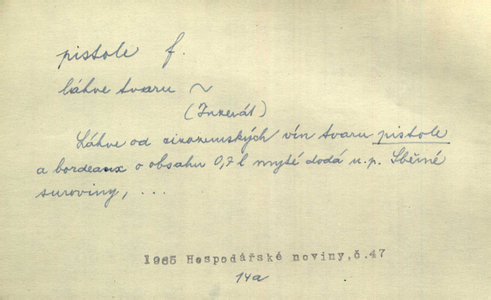 pistole f.
láhve tvaru ~
(Inzerát)
Láhve od cizozemských vín tvaru pistole
a bordeaux o obsahu 0,7 l myté dodá n.p. Sběrné
suroviny, ...
1965 Hospodářské noviny,č.47
14a